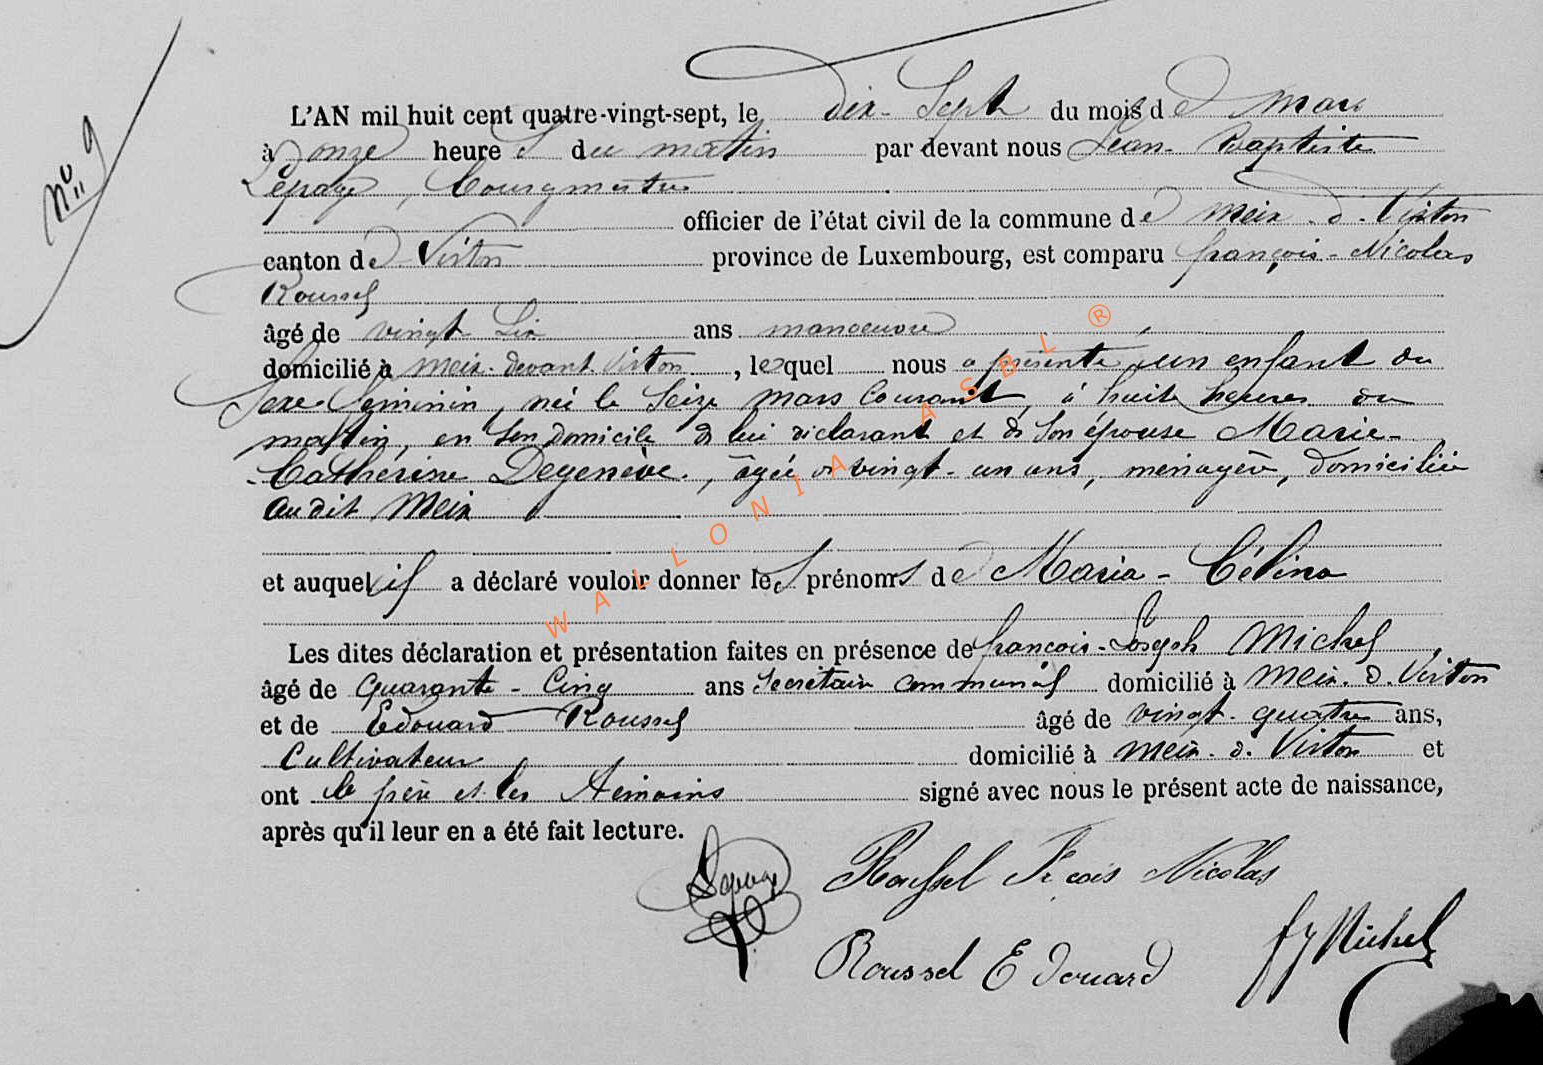 N° 9
L'AN mil huit cent quatre-vingt-sept, le dix-Sept du mois de mars
à onze heures du matin par devant nous Jean-Baptiste
Lepage, Bourgmestre
officier de l'état civil de la commune de Meix-d-Virton
canton de Virton province de Luxembourg, est comparu françois-Nicolas
Roussel
âgé de vingt Six ans manoeuvre
domicilié à Meix-devant-Virton, lequel nous a présenté un enfant du
Sexe féminin, né le Seize mars Courant, à huit heures du
matin, en Son domicile de lui déclarant et de Son épouse Marie-
Catherine Degenève, âgée de vingt-un ans, ménagère, domiciliée
audit Meix
et auquel il a déclaré vouloir donner les prénoms de Maria-Célina
Les dites déclaration et présentation faites en présence de françois-Joseph Michel,
âgé de Quarante-Cinq ans Secrétaire communal domicilié à Meix-d-Virton
et de Edouard Roussel âgé de vingt-quatre ans,
Cultivateur domicilié à Meix-d-Virton et
ont le père et les témoins signé avec nous le présent acte de naissance,
après qu'il leur en a été fait lecture.
Lepage Roussel Fçois Nicolas
Roussel Edouard fj Michel
WALLONIA ASBL ®